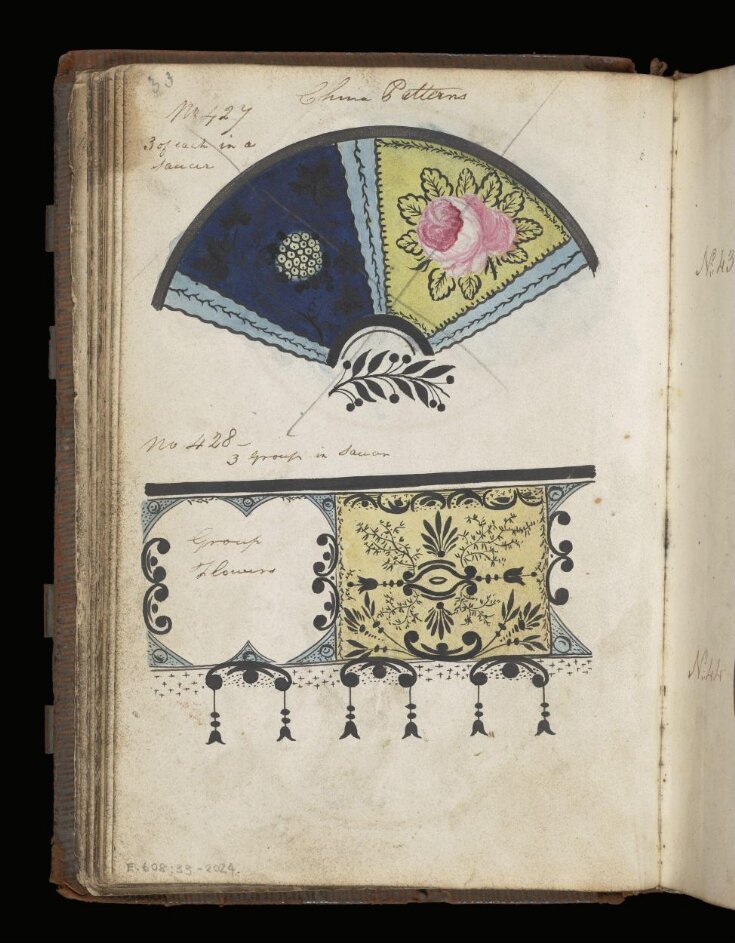 33
China Patterns
No 427
3 of each in a
saucer
No 428
3 Groups in Saucer
Group
Flowers
No 43
No 44
E.608:33-2024.